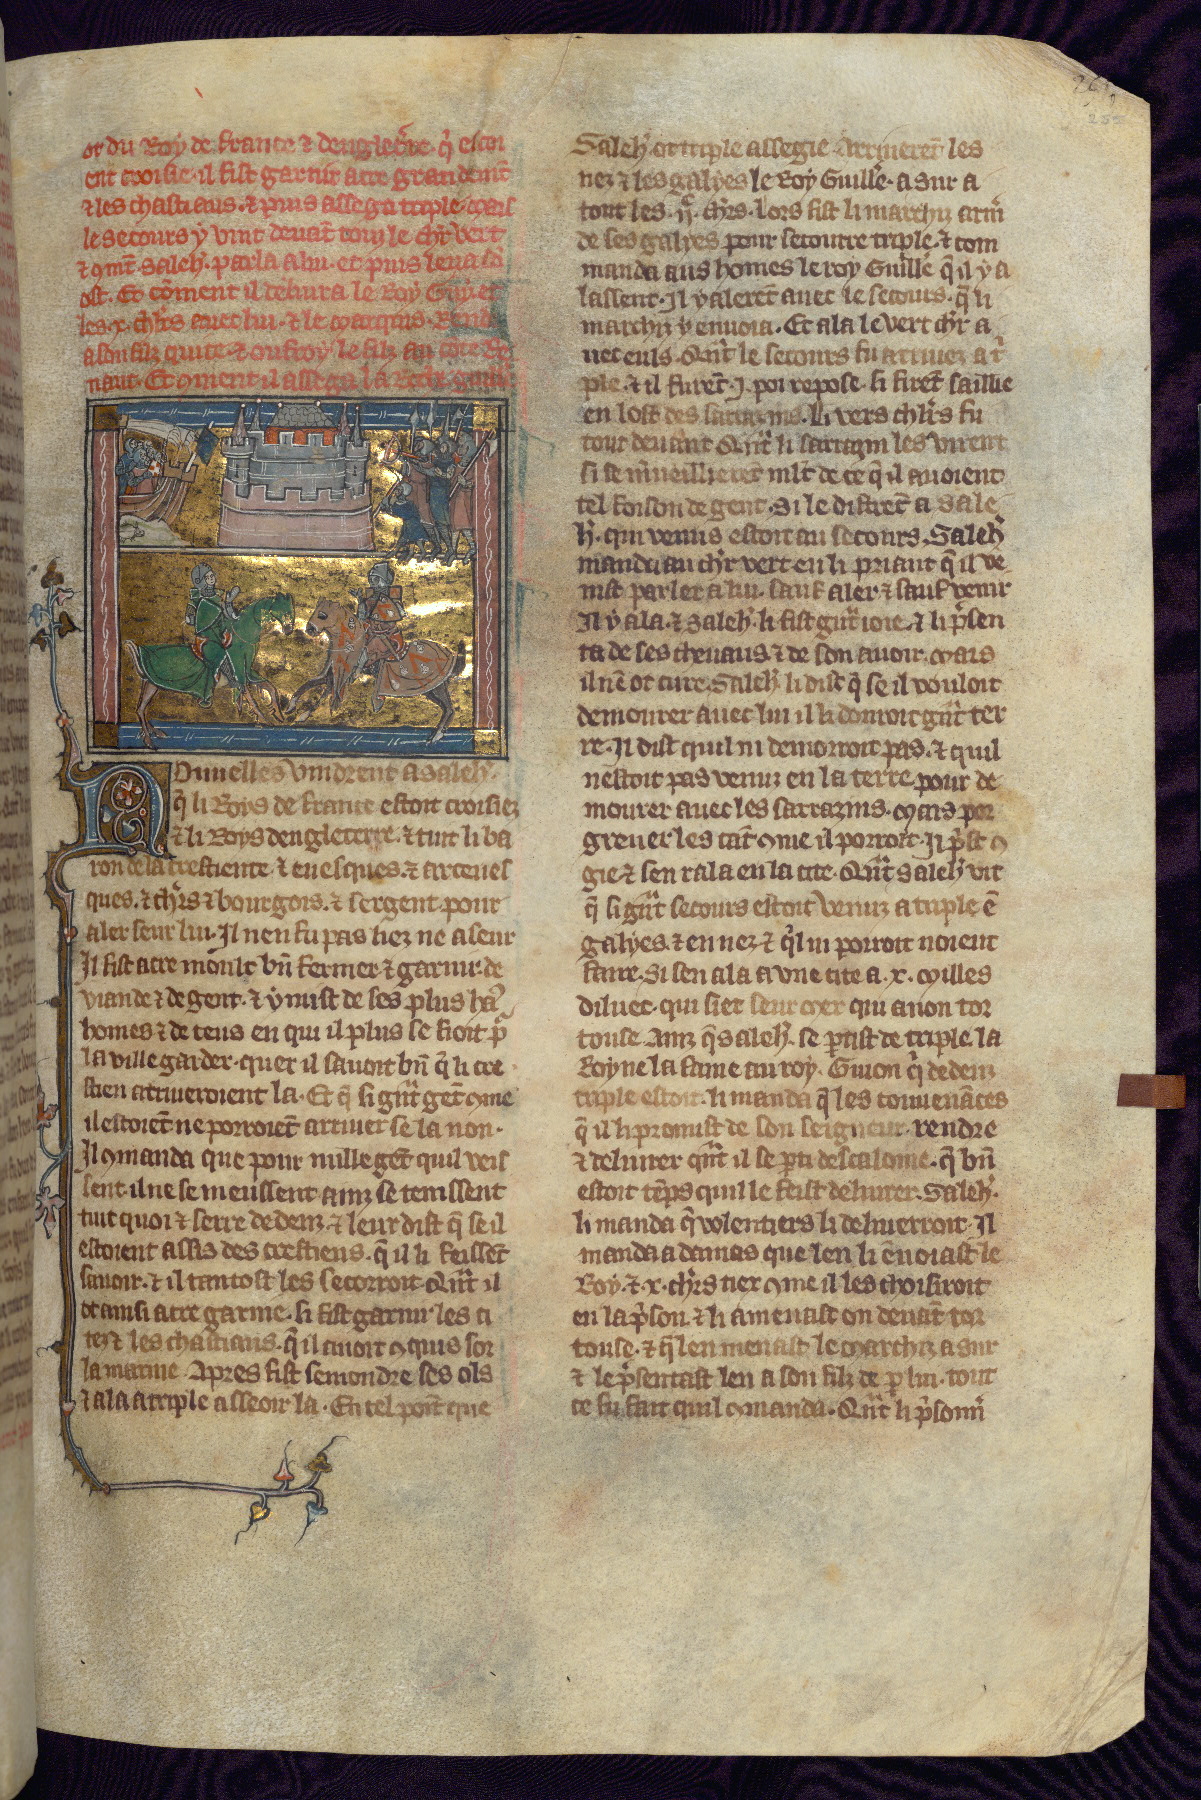 ot du Roy de france ⁊ dengleťre. q̇ estoi
ent croisie. il fist garnir acre grandem̄t
⁊ les chastiaus. ⁊ puis assega triple. mais
le secours y vint deuāt touz le ch̅r vert
⁊ ꝯm̄t Saleh̅. parla a lui. et puis leua sō
ost. Et cōment il deliura le Roy Guy et
les .x. ch̅rs auec lui. ⁊ le marquis. Rendi
a son filz quite. ⁊ oufroy le filz au
naut. Et ꝯment il assega la
Nouuelles vindrent a saleh̅.
q̄ li Roys de france estoit croisiez
⁊ li Roys dengleterre. ⁊ tuit li ba
ron de la crestiente. ⁊ euesques. ⁊ arceues
ques. ⁊ ch̅rs ⁊ bourgois. ⁊ sergent pour
aler seur lui. Il nen fu pas liez ne a seur
Il fist acre moult bn̄ fermer ⁊ garnir de
viande ⁊ de gent. ⁊ y mist de ses plus haˢ
homes ⁊ de teus en qui il plus se fioit pˢ
la ville garder. quer il sauoit bn̄ q̄ li cre
stien arriueroient la. Et q̄ si gn̄t gēt ꝯme
il estoiēt ne porroiēt arriuer se la non.
Il ꝯmanda que pour nulle gēt quil veis
sent. il ne se meussent ainz se tenissent
tuit quoi ⁊ serre dedenz. ⁊ leur dist q̄ se il
estoient assis des crestiens. q̄ il li feissēt
sauoir. ⁊ il tantost les secorroit. Qn̄t il
ot ainsi acre garnie. si fist garnir les ci
tez ⁊ les chastiaus. q̄ il auoit ꝯquis sor
la marine. Apres fist semondre ses ols
⁊ ala a triple asseoir la. En tel point que
Saleh̅. ot triple assegie. Arriuerēt les
nez ⁊ les galyes le Roy Guille. a sur a
tout les. ch̅rs. lors fist li marchiz arm̄
de ses galyes pour secourre triple. ⁊ com
manda aus homes le roy Guille q̄ il y a
lassent. Il y alerēt auec le secours. q̄ li
marchiz y enuoia. Et ala le vert ch̅r a
uec euls. Qn̄t le secours fu arriuez a tˢ
ple. ⁊ il furēt .j. poi repose. si firēt saillie
en lost des sarrazins. li vers ch̅rs fu
tout deuant. Qn̄t li sarrazin les virent
si se m̄ueillierēt mlt̄ de ce q̄ il auoient
tel foison de gent. Si le distrēt a Sale
h̅. qui venus estoit au secours. Saleh̅
manda au ch̅r vert en li priant q̄ il ve
nist parler a lui. sauf aler ⁊ sauf venir
Il y ala. ⁊ Saleh̅. li fist gn̄t ioie. ⁊ li p̄sen
ta de ses cheuaus. ⁊ de son auoir. mais
il nē ot cure. Saleh̅. li dist q̄ se il vouloit
demourer auec lui il li donroit gn̄t ter
re. Il dist quil ni demorroit pas. ⁊ quil
nestoit pas venuz en la terre pour de
mourer auec les sarrazins. mais por
greuer les tāt ꝯme il porroit. Il p̄st ꝯ
gie ⁊ sen rala en la cite. Qn̄t Saleh̅ vit
q̄ si gn̄t secours estoit venuz a triple ē
galyes. ⁊ en nez ⁊ q̇l ni porroit noient
faire. Si sen ala a vne cite a .x. milles
diluec. qui siet seur mer qui a non tor
touse. Ainz q̄ saleh̅. se p̄tist de triple. la
Royne la fame au roy. Guion q̇ dedenz
triple estoit. li manda q̄ les conuenāces
q̄ il li promist de son seigneur. rendre
⁊ deliurer qn̄t il se p̄ti descalonne. q̄ bn̄
estoit tēps quil le feist deliurer. Saleh̅.
li manda q̄ volentiers li deliuerroit. Il
manda a damas que len li ēuoiast le
Roy. ⁊ .x. ch̅rs tiex ꝯme il les choisiroit
en la p̄son. ⁊ li amenast on deuāt tor
touse. ⁊ q̄ len menast le marchiz a sur
⁊ le p̄sentast len a son filz de p̄ lui. tout
ce fu fait quil ꝯmanda. Qn̄t li p̄sonn̄